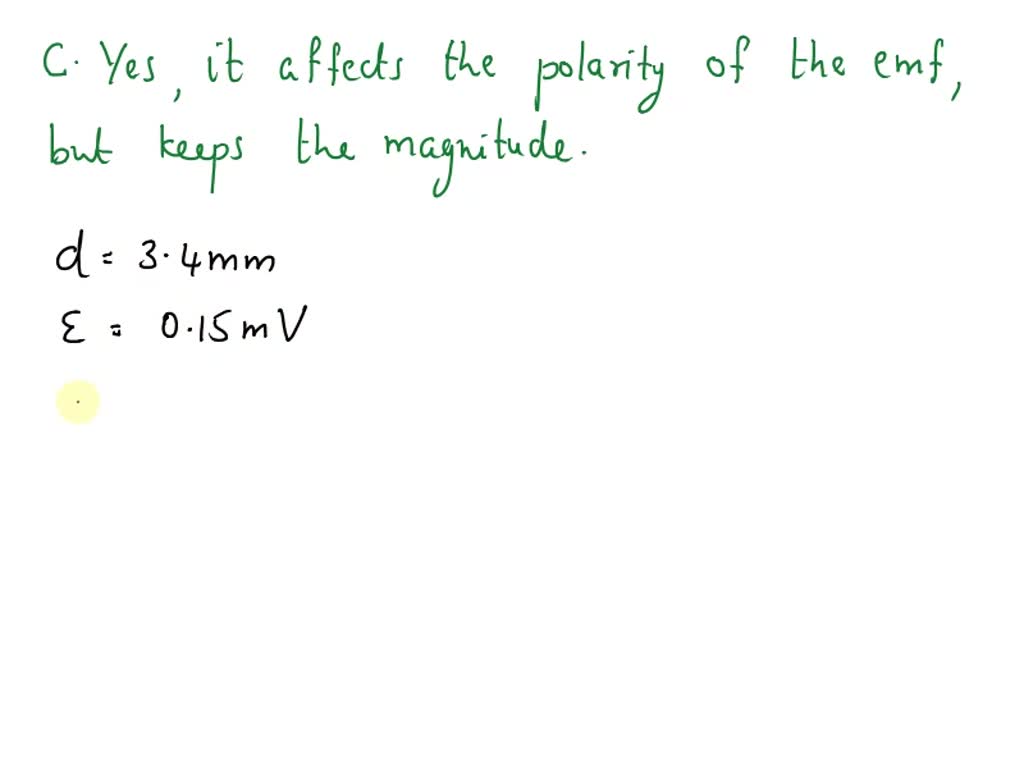 C. Yes, it affects the polarity of the emf,
but keeps the magnitude.
d = 3.4mm
ε = 0.15mV